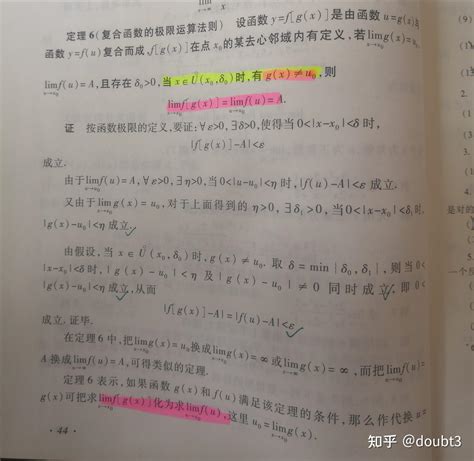 定理6(复合函数的极限运算法则) 设函数y=f[g(x)]是由函数u=g(x)与
函数y=f(u)复合而成,f[g(x)]在点x₀的某去心邻域内有定义,若lim_{x→x₀}g(x)=u₀,
lim_{u→u₀}f(u)=A,且存在δ₀>0,当x∈Ů(x₀,δ₀)时,有g(x)≠u₀,则
lim_{x→x₀}f[g(x)]=lim_{u→u₀}f(u)=A.
证 按函数极限的定义,要证:∀ε>0,∃δ>0,使得当0<|x-x₀|<δ时,
|f[g(x)]-A|<ε
成立.
由于lim_{u→u₀}f(u)=A,∀ε>0,∃η>0,当0<|u-u₀|<η时,|f(u)-A|<ε成立.
又由于lim_{x→x₀}g(x)=u₀,对于上面得到的η>0,∃δ₁>0,当0<|x-x₀|<δ₁时,
|g(x)-u₀|<η成立.
由假设,当x∈Ů(x₀,δ₀)时,g(x)≠u₀.取δ=min{δ₀,δ₁},则当0<
|x-x₀|<δ时,|g(x)-u₀|<η及|g(x)-u₀|≠0同时成立,即0<
|g(x)-u₀|<η成立,从而
|f[g(x)]-A|=|f(u)-A|<ε
成立.证毕.
在定理6中,把lim_{x→x₀}g(x)=u₀换成lim_{x→x₀}g(x)=∞或lim_{x→∞}g(x)=∞,而把lim_{u→u₀}f(u)=
A换成lim_{u→∞}f(u)=A,可得类似的定理.
定理6表示,如果函数g(x)和f(u)满足该定理的条件,那么作代换u=
g(x)可把求lim_{x→x₀}f[g(x)]化为求lim_{u→u₀}f(u),这里u₀=lim_{x→x₀}g(x).
·44·
(1)
2.
(1
3.
是对的
(
一个反
4.
知乎 @doubt3